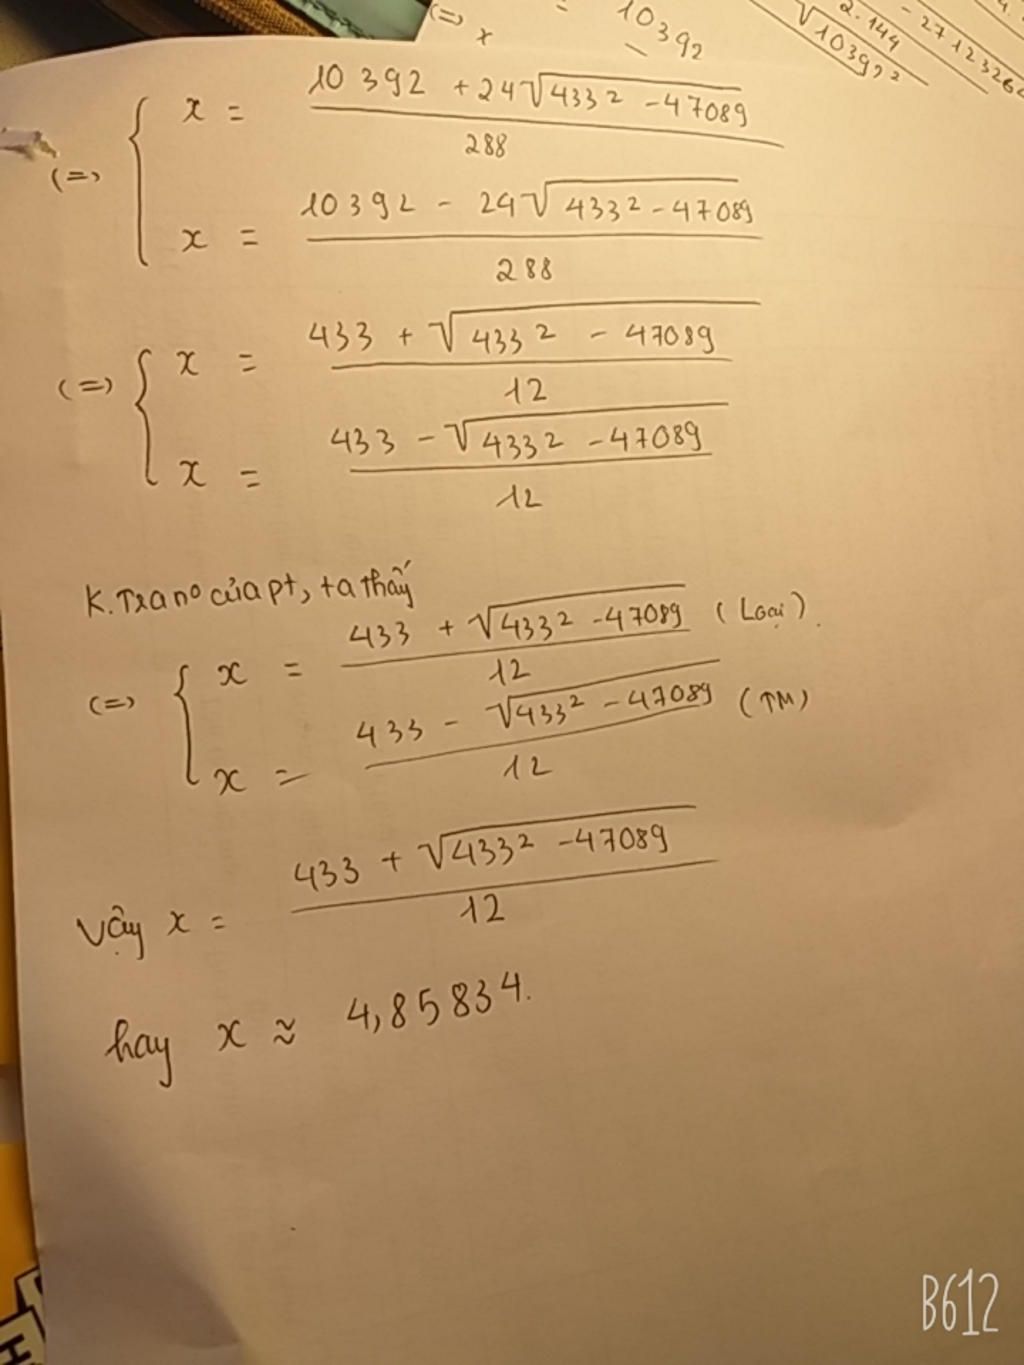 (=) x = 10392
2.144
√10392²
(=) { x = (10392 + 24√(433² - 47089)) / 288
x = (10392 - 24√(433² - 47089)) / 288
(=) { x = (433 + √(433² - 47089)) / 12
x = (433 - √(433² - 47089)) / 12
K.Tra no của pt, ta thấy
(=) { x = (433 + √(433² - 47089)) / 12 (Loại).
x = (433 - √(433² - 47089)) / 12 (TM)
Vậy x = (433 + √(433² - 47089)) / 12
hay x ≈ 4,85834.
B612